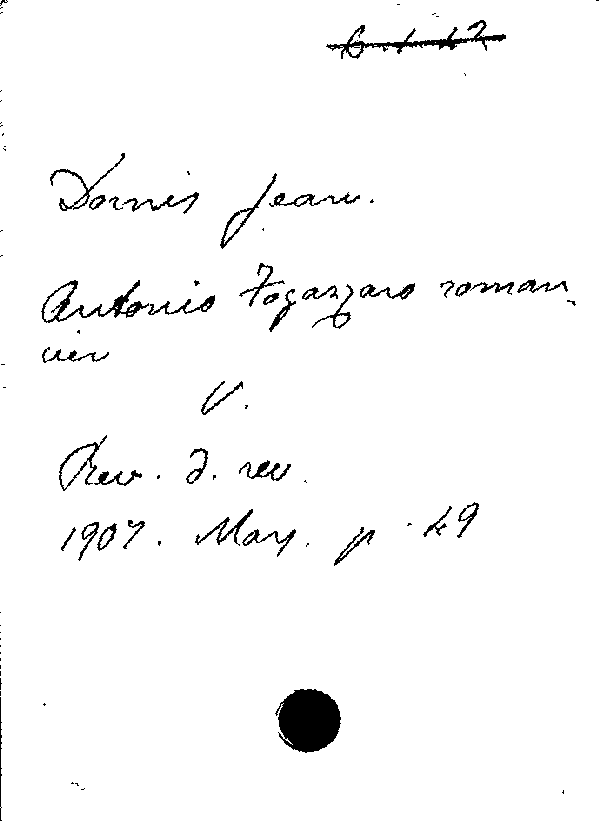 6.1.42
Dornis Jean.
Antonio Fogazzaro roman-
cier
V.
Rev. d. rev.
1907. Mars. p. 49